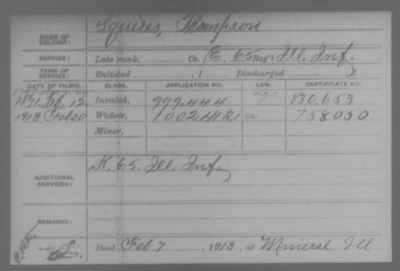 NAME OF SOLDIER: Squires, Thompson
SERVICE: Late rank, Co. E, 65 Reg't Ill. Inf.
TERM OF SERVICE: Enlisted , 1 Discharged , 1
DATE OF FILING. CLASS. APPLICATION NO. LAW. CERTIFICATE NO.
1891 12 Invalid, 999,444 830,653
1913 Feb 20 Widow, 1002412 758030
Minor,
ADDITIONAL SERVICES: K. 65. Ill. Inf.
REMARKS:
Died Feb 7, 1913, at Mineral Ill